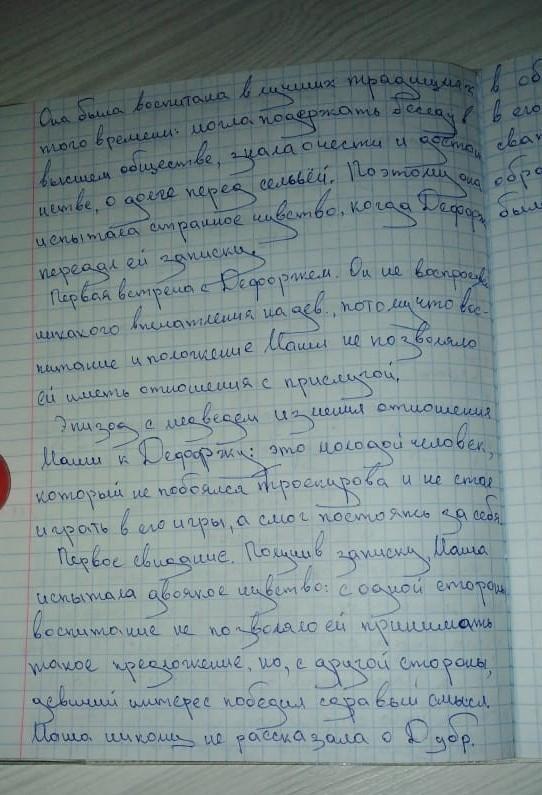 Она была воспитана в лучших традициях
того времени: могла подержать беседу в
высшем обществе, знала о чести и достои
нстве, о долге перед семьёй. Поэтому она
испытала странное чувство, когда Дефорж
передал ей записку.
Первая встреча с Дефоржем. Он не воспроизвёл
никакого впечатления на дев., потому что вос-
питание и положение Маши не позволяло
ей иметь отношения с прислугой.
Эпизод с медведем изменил отношения
Маши к Дефоржу: это молодой человек,
который не побоялся Троекурова и не стал
играть в его игры, а смог постоять за себя.
Первое свидание. Получив записку, Маша
испытала двоякое чувство: с одной стороны
воспитание не позволяло ей принимать
такое предложение, но, с другой стороны,
девичий интерес победил здравый смысл.
Маша никому не рассказала о Дубр.
в об
в его
сват
обра
был